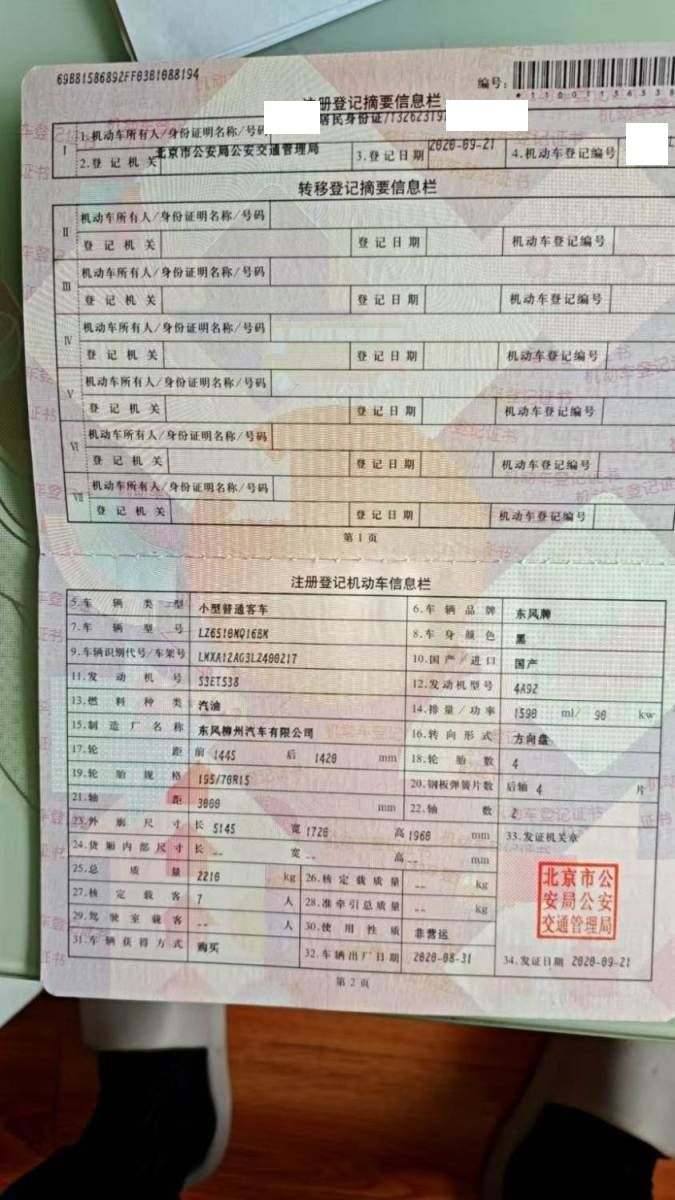 69881586892FF03B1088194
编号:
注册登记摘要信息栏
I 1.机动车所有人/身份证明名称/号码 居民身份证/1326231
2.登记机关 北京市公安局公安交通管理局 3.登记日期 2020-09-21 4.机动车登记编号
转移登记摘要信息栏
II 机动车所有人/身份证明名称/号码
登记机关 登记日期 机动车登记编号
III 机动车所有人/身份证明名称/号码
登记机关 登记日期 机动车登记编号
IV 机动车所有人/身份证明名称/号码
登记机关 登记日期 机动车登记编号
V 机动车所有人/身份证明名称/号码
登记机关 登记日期 机动车登记编号
VI 机动车所有人/身份证明名称/号码
登记机关 登记日期 机动车登记编号
VII 机动车所有人/身份证明名称/号码
登记机关 登记日期 机动车登记编号
第1页
注册登记机动车信息栏
5.车辆类型 小型普通客车 6.车辆品牌 东风牌
7.车辆型号 LZ6510MQ16BM 8.车身颜色 黑
9.车辆识别代号/车架号 LMXA12AG3LZ400217 10.国产/进口 国产
11.发动机号 S3ET538 12.发动机型号 4A92
13.燃料种类 汽油 14.排量/功率 1590 ml/ 90 kw
15.制造厂名称 东风柳州汽车有限公司 16.转向形式 方向盘
17.轮距 前 1445 后 1420 mm 18.轮胎数 4
19.轮胎规格 195/70R15 20.钢板弹簧片数 后轴 4 片
21.轴距 3000 mm 22.轴数 2
23.外廓尺寸 长 5145 宽 1720 高 1960 mm 33.发证机关章
24.货厢内部尺寸 长 -- 宽 -- 高 -- mm
25.总质量 2210 kg 26.核定载质量 -- kg
27.核定载客 7 人 28.准牵引总质量 -- kg
29.驾驶室载客 -- 人 30.使用性质 非营运
31.车辆获得方式 购买 32.车辆出厂日期 2020-08-31 34.发证日期 2020-09-21
北京市公
安局公安
交通管理局
第2页